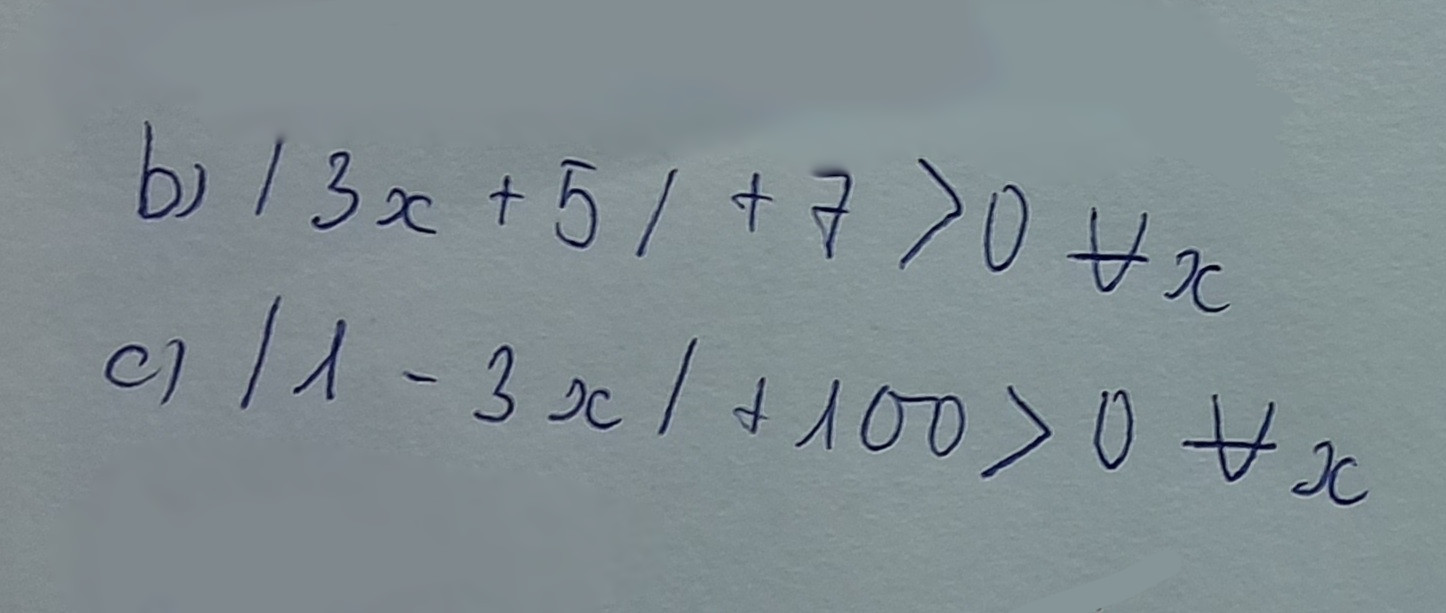 b) |3x + 5| + 7 > 0 ∀x
c) |1 - 3x| + 100 > 0 ∀x